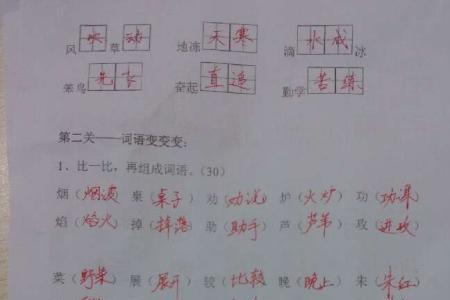 风吹草动 地冻天寒 滴水成冰
笨鸟先飞 奋起直追 勤学苦练
第二关——词语变变变:
1、比一比，再组成词语。(30)
烟(烟波) 桌(桌子) 劝(劝说) 炉(火炉) 功(功课)
焰(焰火) 掉(掉落) 助(助手) 芦(芦苇) 攻(进攻)
菜(野菜) 展(展开) 较(比较) 晚(晚上) 朱(朱红)